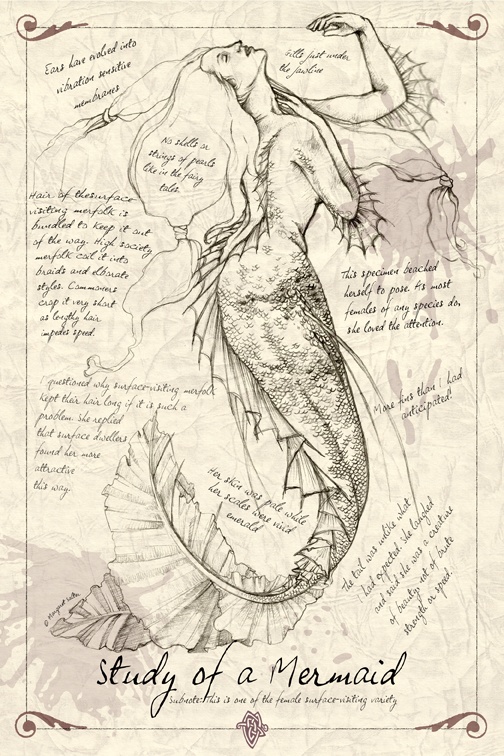 Ears have evolved into
vibration sensitive
membranes
Gills just under
the jawline
No shells or
strings of pearls
like in the fairy
tales.
Hair of the surface-
visiting merfolk is
bundled to keep it out
of the way. High society
merfolk coil it into
braids and elborate
styles. Commoners
crop it very short
as lengthy hair
impedes speed.
This specimen beached
herself to pose. As most
females of any species do,
she loved the attention.
I questioned why surface-visiting merfolk
kept their hair long if it is such a
problem. She replied
that surface dwellers
found her more
attractive
this way.
More fins than I had
anticipated!
Her skin was pale while
her scales were vivid
emerald
The tail was unlike what
had expected. She laughed
and said she was a creature
of beauty not of brute
strength or speed.
Study of a Mermaid
Subnote: This is one of the female surface-visiting variety